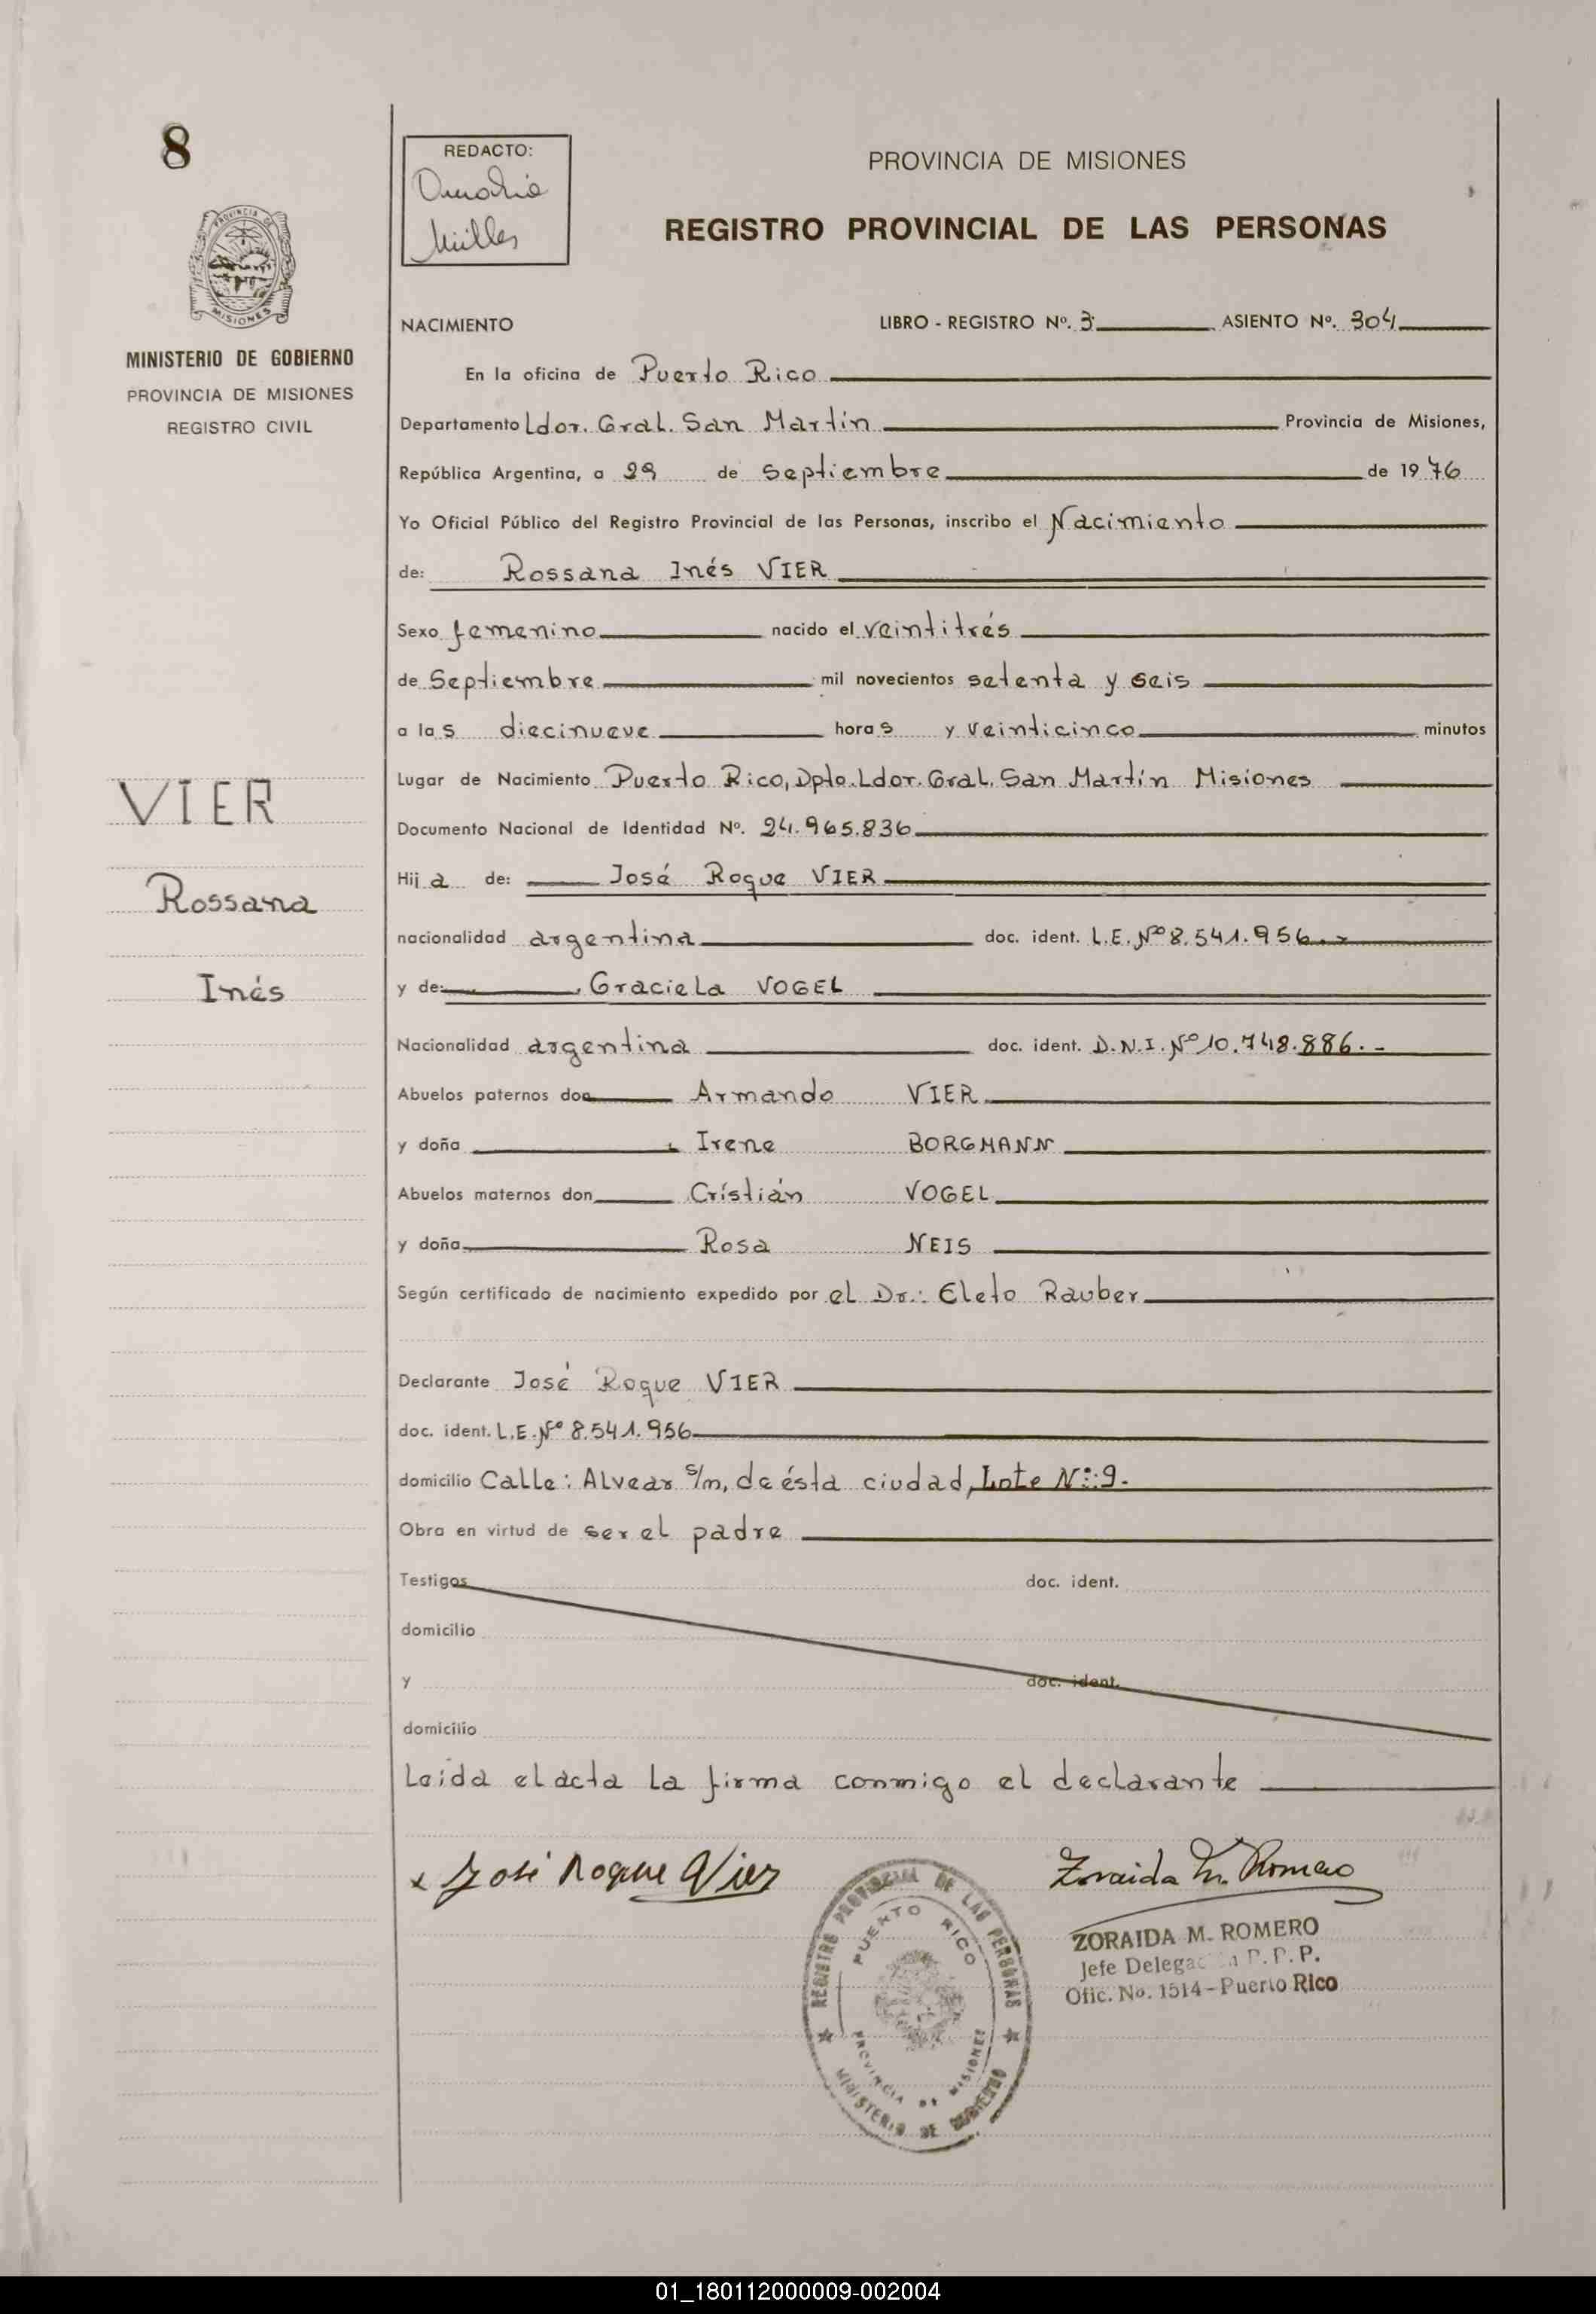 8
REDACTO:
PROVINCIA DE MISIONES
REGISTRO PROVINCIAL DE LAS PERSONAS
PROVINCIA DE MISIONES
MINISTERIO DE GOBIERNO
PROVINCIA DE MISIONES
REGISTRO CIVIL
NACIMIENTO LIBRO - REGISTRO Nº. 3 ASIENTO Nº. 304
En la oficina de Puerto Rico
Departamento Ldor. Gral. San Martín Provincia de Misiones,
República Argentina, a 29 de Septiembre de 1976
Yo Oficial Público del Registro Provincial de las Personas, inscribo el Nacimiento
de: Rossana Inés VIER
Sexo femenino nacido el veintitrés
de Septiembre mil novecientos setenta y seis
a las diecinueve horas y veinticinco minutos
Lugar de Nacimiento Puerto Rico, Dpto. Ldor. Gral. San Martín Misiones
Documento Nacional de Identidad Nº. 24.965.836
Hija de: José Roque VIER
nacionalidad argentina doc. ident. L.E. Nº 8.541.956.-
y de: Graciela VOGEL
Nacionalidad argentina doc. ident. D.N.I. Nº 10.748.886.-
Abuelos paternos don Armando VIER
y doña Irene BORGMANN
Abuelos maternos don Cristián VOGEL
y doña Rosa NEIS
Según certificado de nacimiento expedido por el Dr.: Eleto Rauber
Declarante José Roque VIER
doc. ident. L.E. Nº 8.541.956
domicilio Calle: Alvear s/n, de ésta ciudad, Lote Nº: 9.
Obra en virtud de ser el padre
Testigos doc. ident.
domicilio
y doc. ident.
domicilio
Leida el acta la firma conmigo el declarante
VIER
Rossana
Inés
x José Roque Vier
Zoraida M. Romero
REGISTRO PROVINCIAL DE LAS PERSONAS
PUERTO RICO
PROVINCIA DE MISIONES
MINISTERIO DE GOBIERNO
ZORAIDA M. ROMERO
Jefe P.P.P.
Ofic. No. 1514 - Puerto Rico
01_180112000009-002004